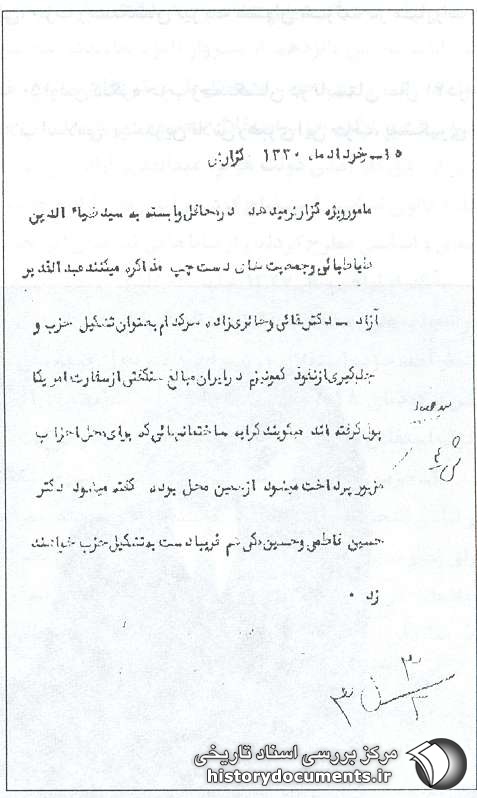 ۱۵ خرداد ماه ۱۳۳۰ گزارش
مامور ویژه گزارش میدهد در محافل وابسته به سید ضیاء الدین
طباطبائی و جمعیت شان دست چپ مذاکره میکنند عبدالقدیر
آزاد دکتر بقائی و حائری زاده هر کدام بعنوان تشکیل حزب و
جلوگیری از نفوذ کمونیزم در ایران مبالغ هنگفتی از سفارت امریکا
پول گرفته اند میگویند کرایه ساختمانهائی که برای محل احزاب
مزبور پرداخت میشود از همین محل بوده گفته میشود دکتر
حسین فاطمی و حسین مکی هم قریبا دست به تشکیل حزب خواهند
زد .
مرکز بررسی اسناد تاریخی
historydocuments.ir